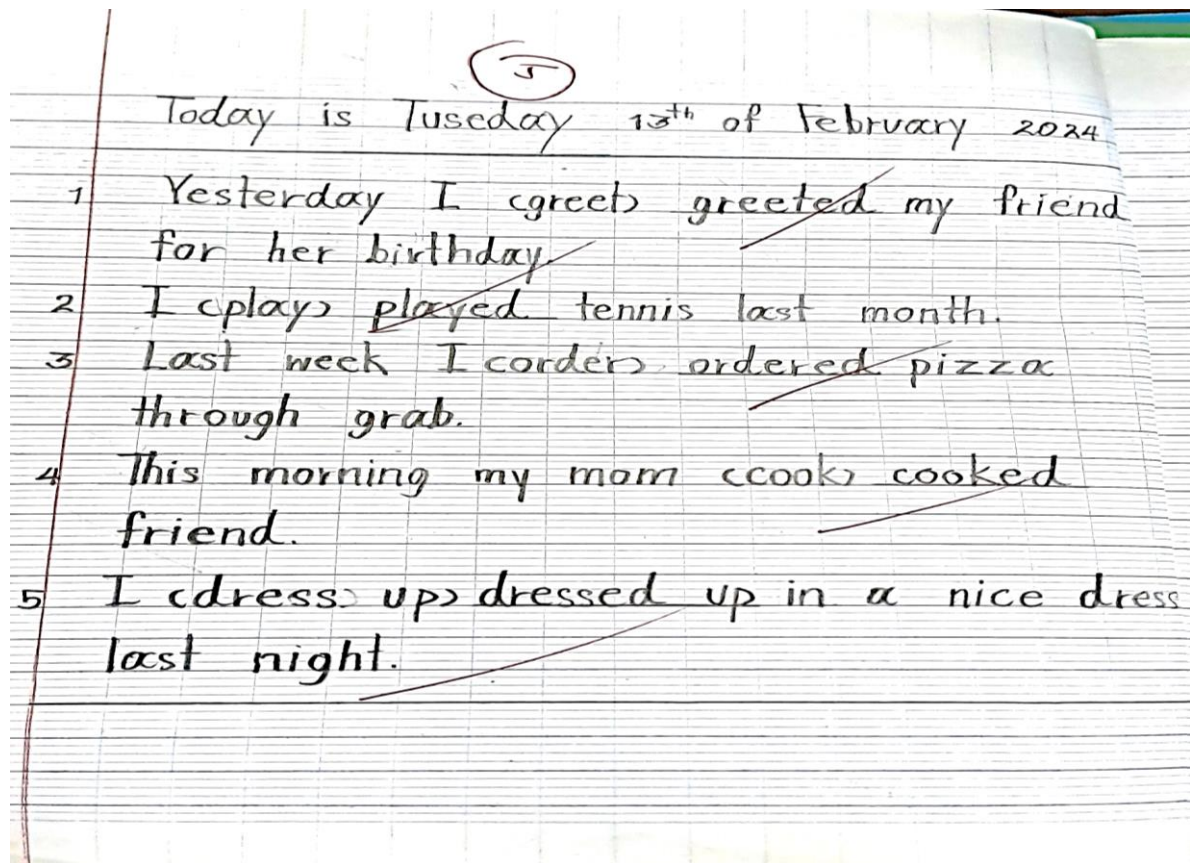 5
Today is Tuseday 13th of February 2024
1 Yesterday I (greet) greeted my friend
for her birthday.
2 I (play) played tennis last month.
3 Last week I (order) ordered pizza
through grab.
4 This morning my mom (cook) cooked
friend.
5 I (dress up) dressed up in a nice dress
last night.